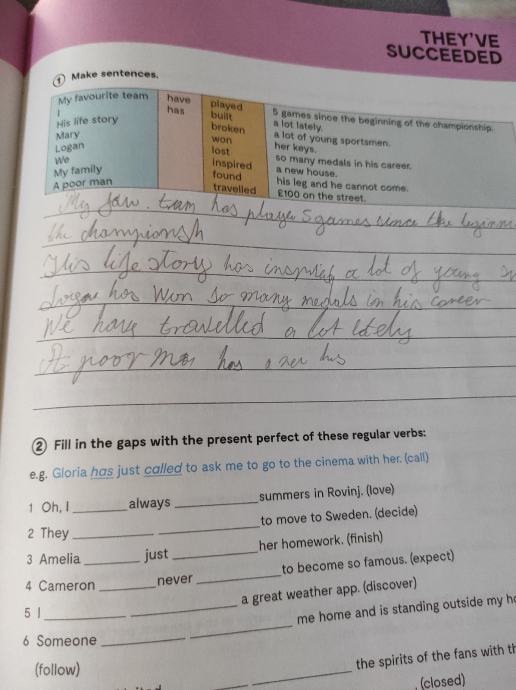 THEY'VE
SUCCEEDED
1 Make sentences.
My favourite team
I
His life story
Mary
Logan
We
My family
A poor man
have
has
played
built
broken
won
lost
inspired
found
travelled
5 games since the beginning of the championship.
a lot lately.
a lot of young sportsmen.
her keys.
so many medals in his career.
a new house.
his leg and he cannot come.
£100 on the street.
My fav. team has playe 5 games since the
the
His life story has a lot of young
Logan has won so many medals in his career
We have travelled a lot
A poor man has
2 Fill in the gaps with the present perfect of these regular verbs:
e.g. Gloria has just called to ask me to go to the cinema with her. (call)
1 Oh, I always summers in Rovinj. (love)
2 They to move to Sweden. (decide)
3 Amelia just her homework. (finish)
4 Cameron never to become so famous. (expect)
5 I a great weather app. (discover)
6 Someone me home and is standing outside my
(follow)
the spirits of the fans with
(closed)